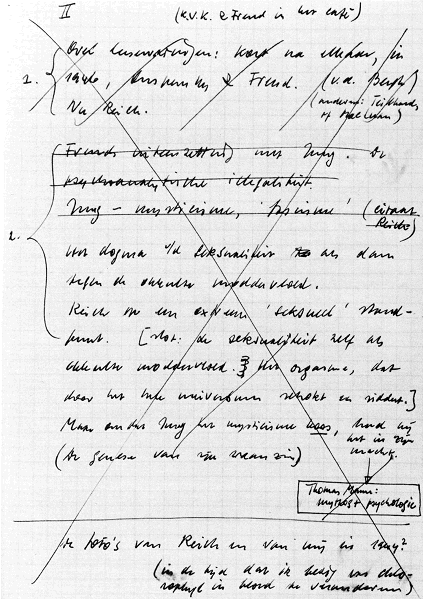 II (K.v.K. & Freud in het café)
1. Over leeservaringen: kort na elkaar, in
, Ouspensky & Freud. (v.d. Bergh)
Nu Reich. (anderen: Teilhard
of)
2. (Freuds uiteenzetting met Jung. De
psychoanalytische illegaliteit
Jung – mysticisme, 'fascisme' (citaat
Reich)
Het dogma v/d seksualiteit als dam
tegen de okkulte moddervloed.
Reich op een extreem 'seksueel' stand-
punt. [slot: de seksualiteit zelf als
okkulte moddervloed. Het orgasme, dat
door het hele universum schokt en siddert.]
Maar omdat Jung het mysticisme koos, had hij
het in zijn
macht.
(De genese van zijn waanzin)
Thomas Mann:
mythos + psychologie
De foto's van Reich en van mij in 1947?
(in de tijd dat ik bezig was chlo-
rophyl in bloed te veranderen)